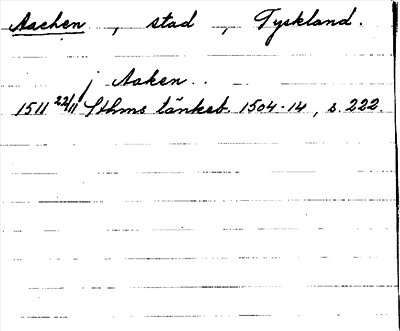 Aachen, stad, Tyskland.
j Aaken..
1511 22/11 Sthms tänkeb. 1504-14, s. 222.